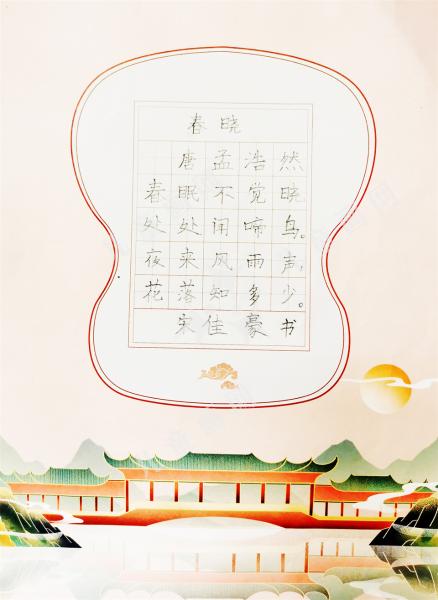 春晓
唐孟浩然
春眠不觉晓
处处闻啼鸟。
夜来风雨声，
花落知多少。
宋佳豪书